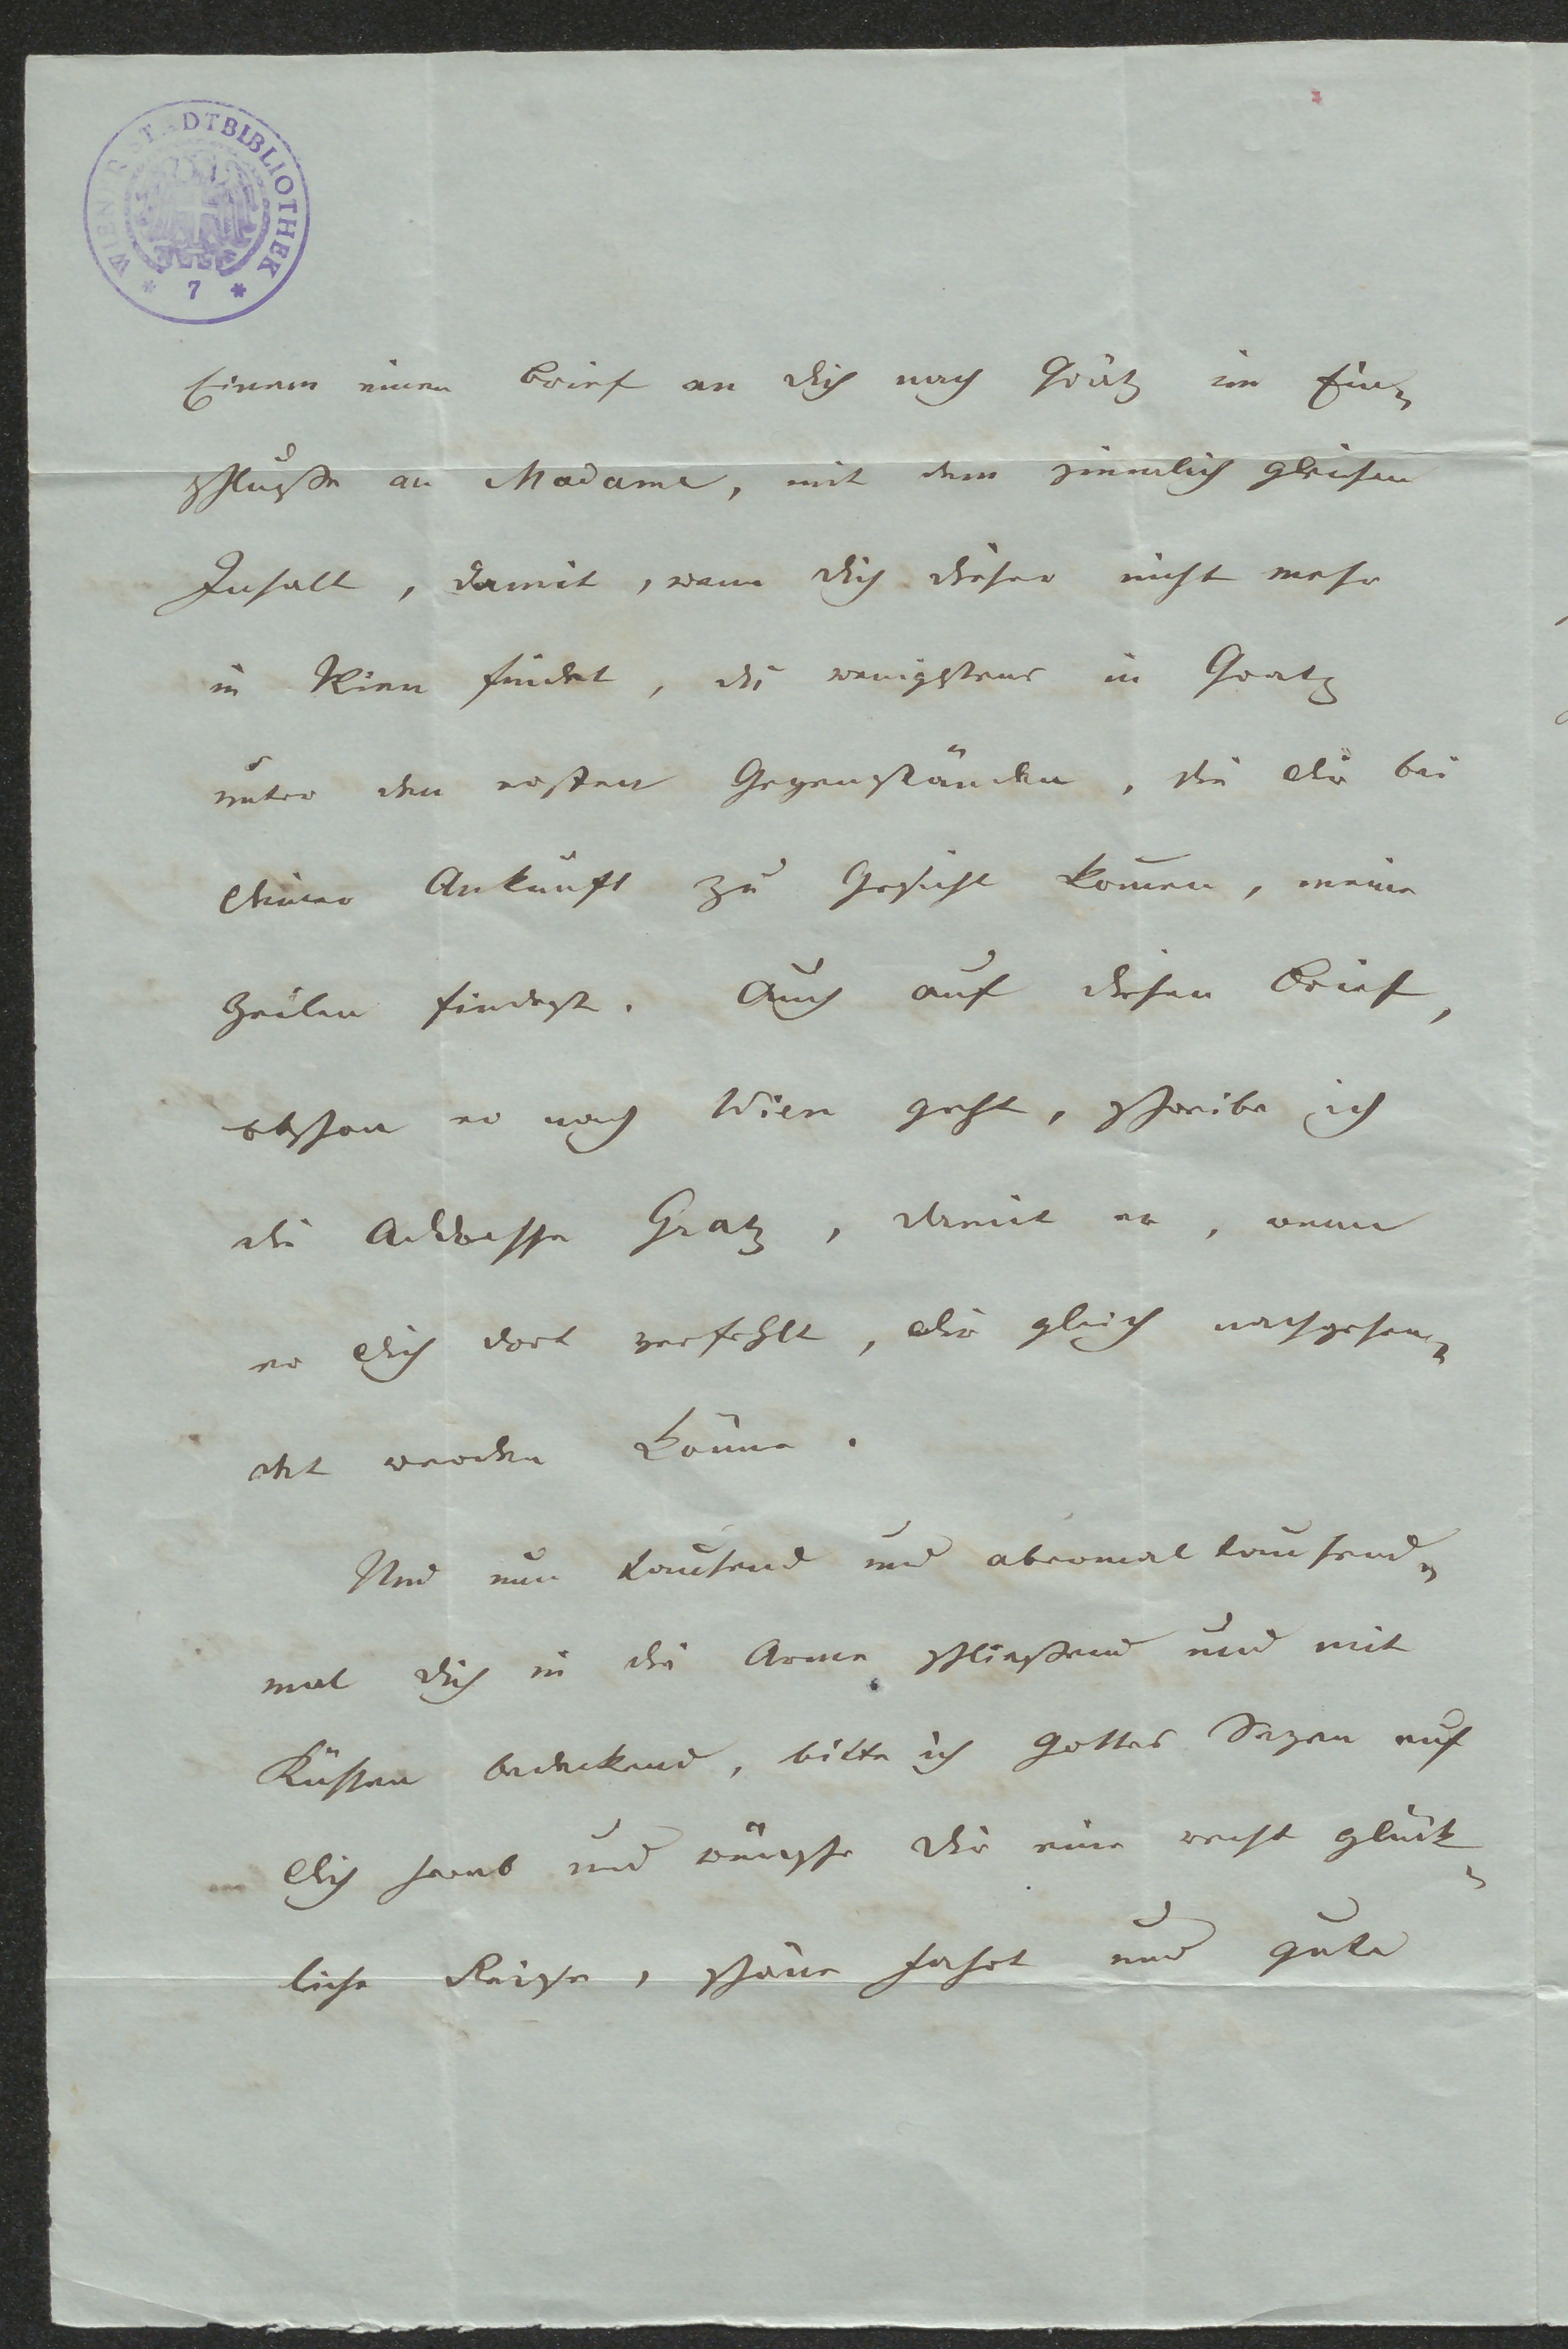 WIENER STADTBIBLIOTHEK
* 7 *
Einem einen Brief an dich nach Grätz im Ein-
schluße an Madame, mit dem ziemlich gleichen
Inhalt, damit, wenn dich dieser nicht mehr
in Wien findet, du wenigstens in Gratz
unter den ersten Gegenständen, die dir bei
deiner Ankunft zu Gesicht komen, meine
Zeilen findest. Auch auf diesen Brief,
obschon er nach Wien geht, schreibe ich
die Addresse Gratz, damit er, wenn
er dich dort verfehlt, dir gleich nachgesen-
det werden könne.
Und nun tausend und abermal tausend-
mal dich in die Arme schließend und mit
Küssen bedeckend, bitte ich Gottes Segen auf
dich herab und wünsche dir eine recht glück-
liche Reise, schöne Fahrt und gute